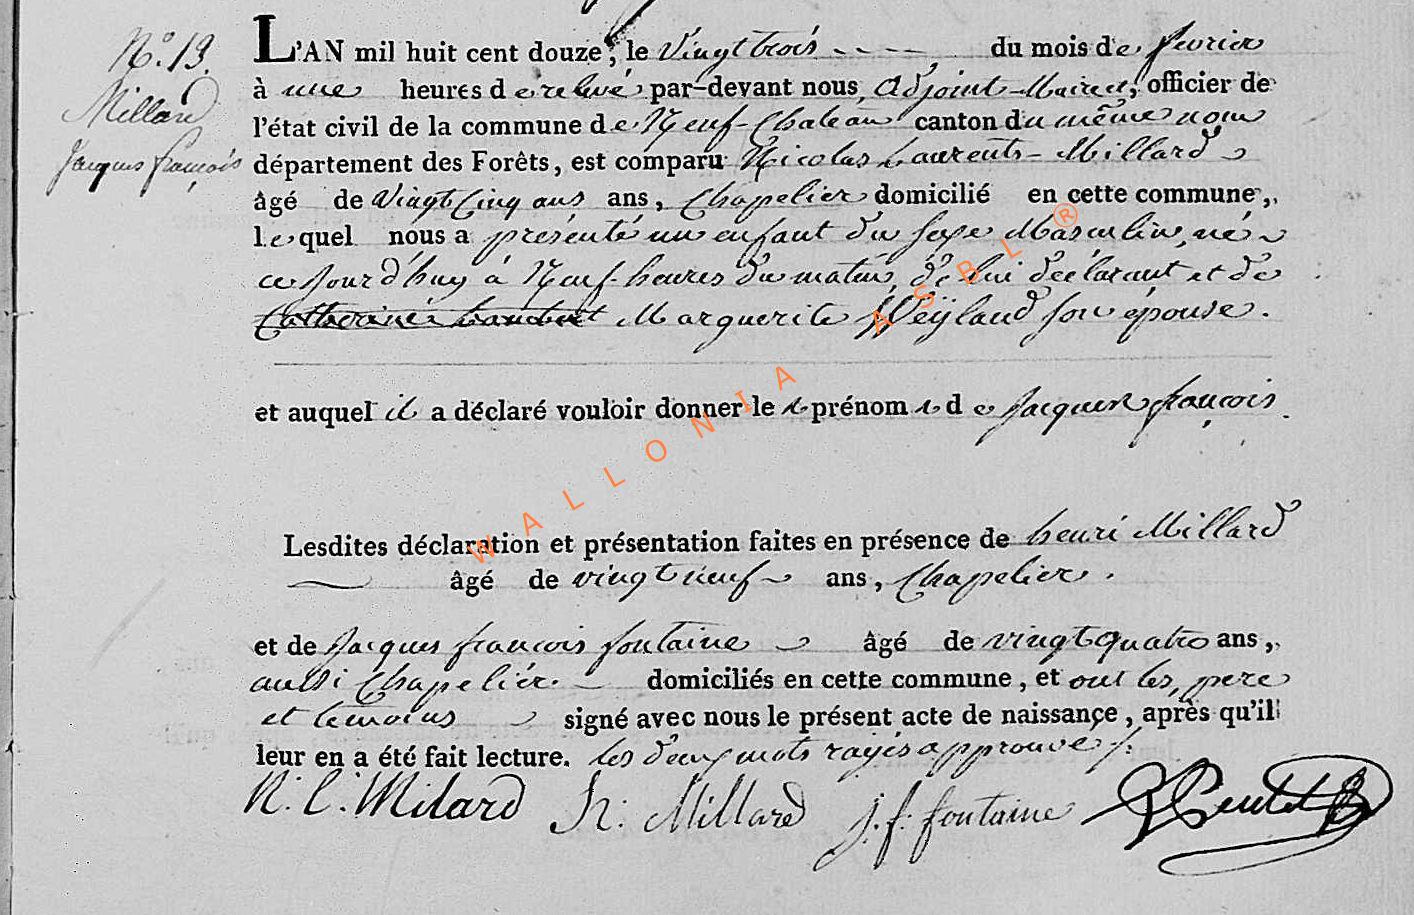 N.º 19.
Millard
Jacques françois
L'AN mil huit cent douze, le Vingt trois du mois de fevrier
à une heures de relevé par-devant nous, Adjoint-Maire, officier de
l'état civil de la commune de Neuf-Chateau canton du même nom
département des Forêts, est comparu Nicolas Laurents-Millard
âgé de Vingt Cinq ans ans, Chapelier domicilié en cette commune,
lequel nous a présenté un enfant du sexe Masculin, né
ce jour d'huy à Neuf heures du matin, de lui déclarant et de
Catherine Lambert Marguerite Weÿland son épouse.
et auquel il a déclaré vouloir donner les prénoms de Jacques françois.
Lesdites déclaration et présentation faites en présence de henri Millard
âgé de vingt neuf ans, Chapelier.
et de Jacques françois fontaine âgé de vingt quatre ans,
aussi Chapelier. domiciliés en cette commune, et ont les pere
et temoins signé avec nous le présent acte de naissance, après qu'il
leur en a été fait lecture. les deux mots rayés approuvés /.
N. L. Milard H: Millard j. f. fontaine
WALLONIA ASBL ®